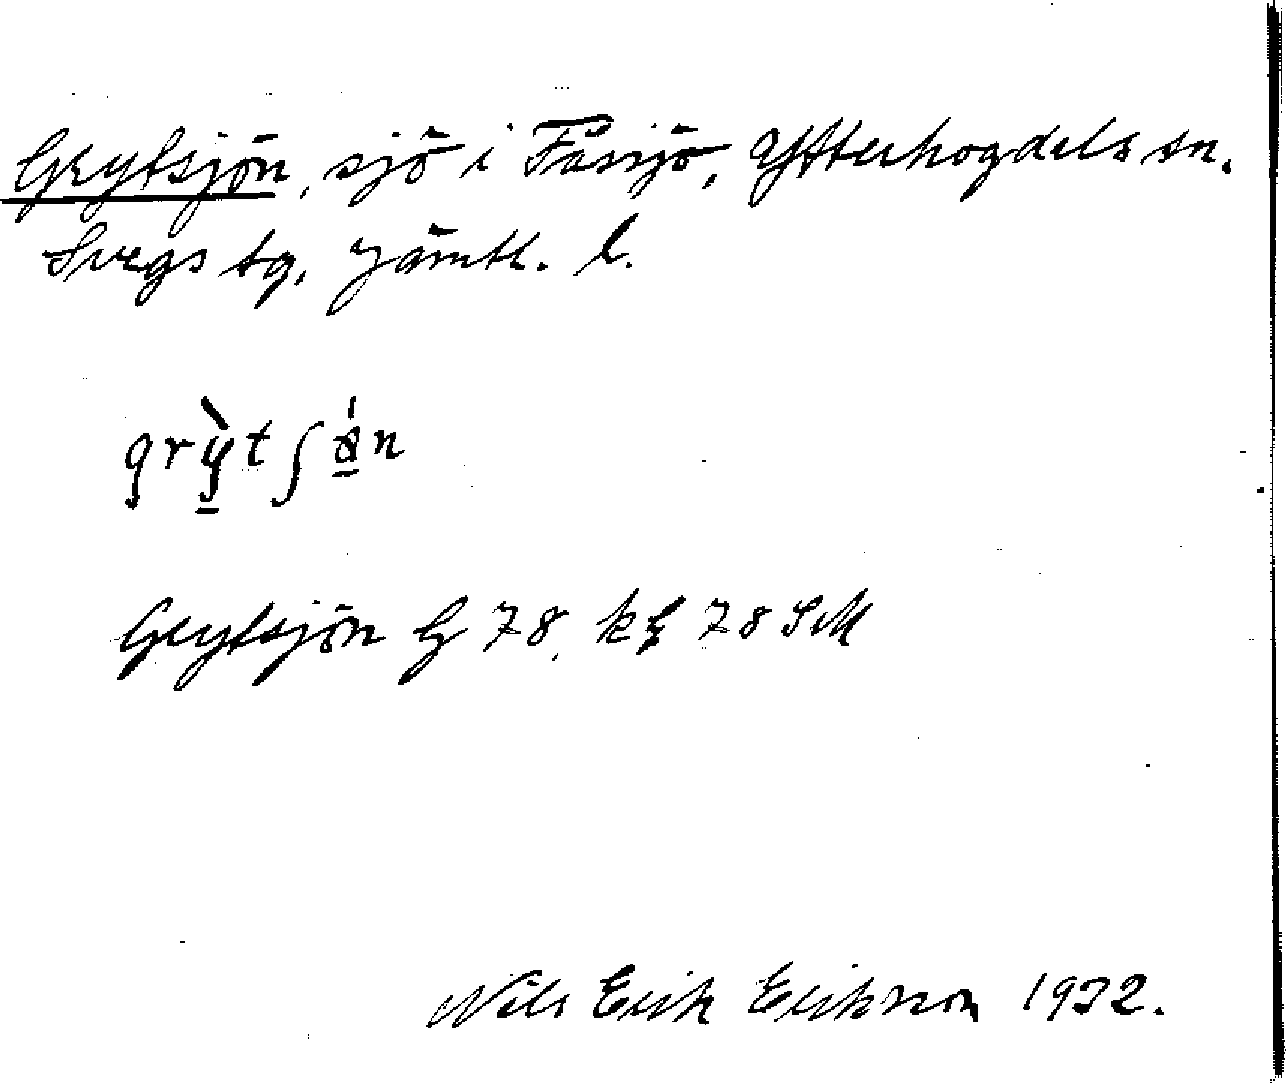 Grytsjön, sjö i Fåssjö, Ytterhogdals sn.
Svegs tg, Jämtl. l.
grỳtʃön
Grytsjön G 78, k 78 SM
Nils Erik Erikson 1932.